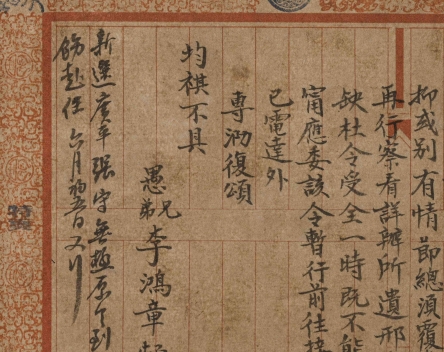 抑或別有情節總須覆
再行察看詳辦所遺邢
缺杜令受全一時既不能
甯應委該令暫行前往接
已電達外
專泐復頌
均祺不具
愚兄弟李鴻章頓
新選广平强守無極原令到
飭赴任 六月初五日又行